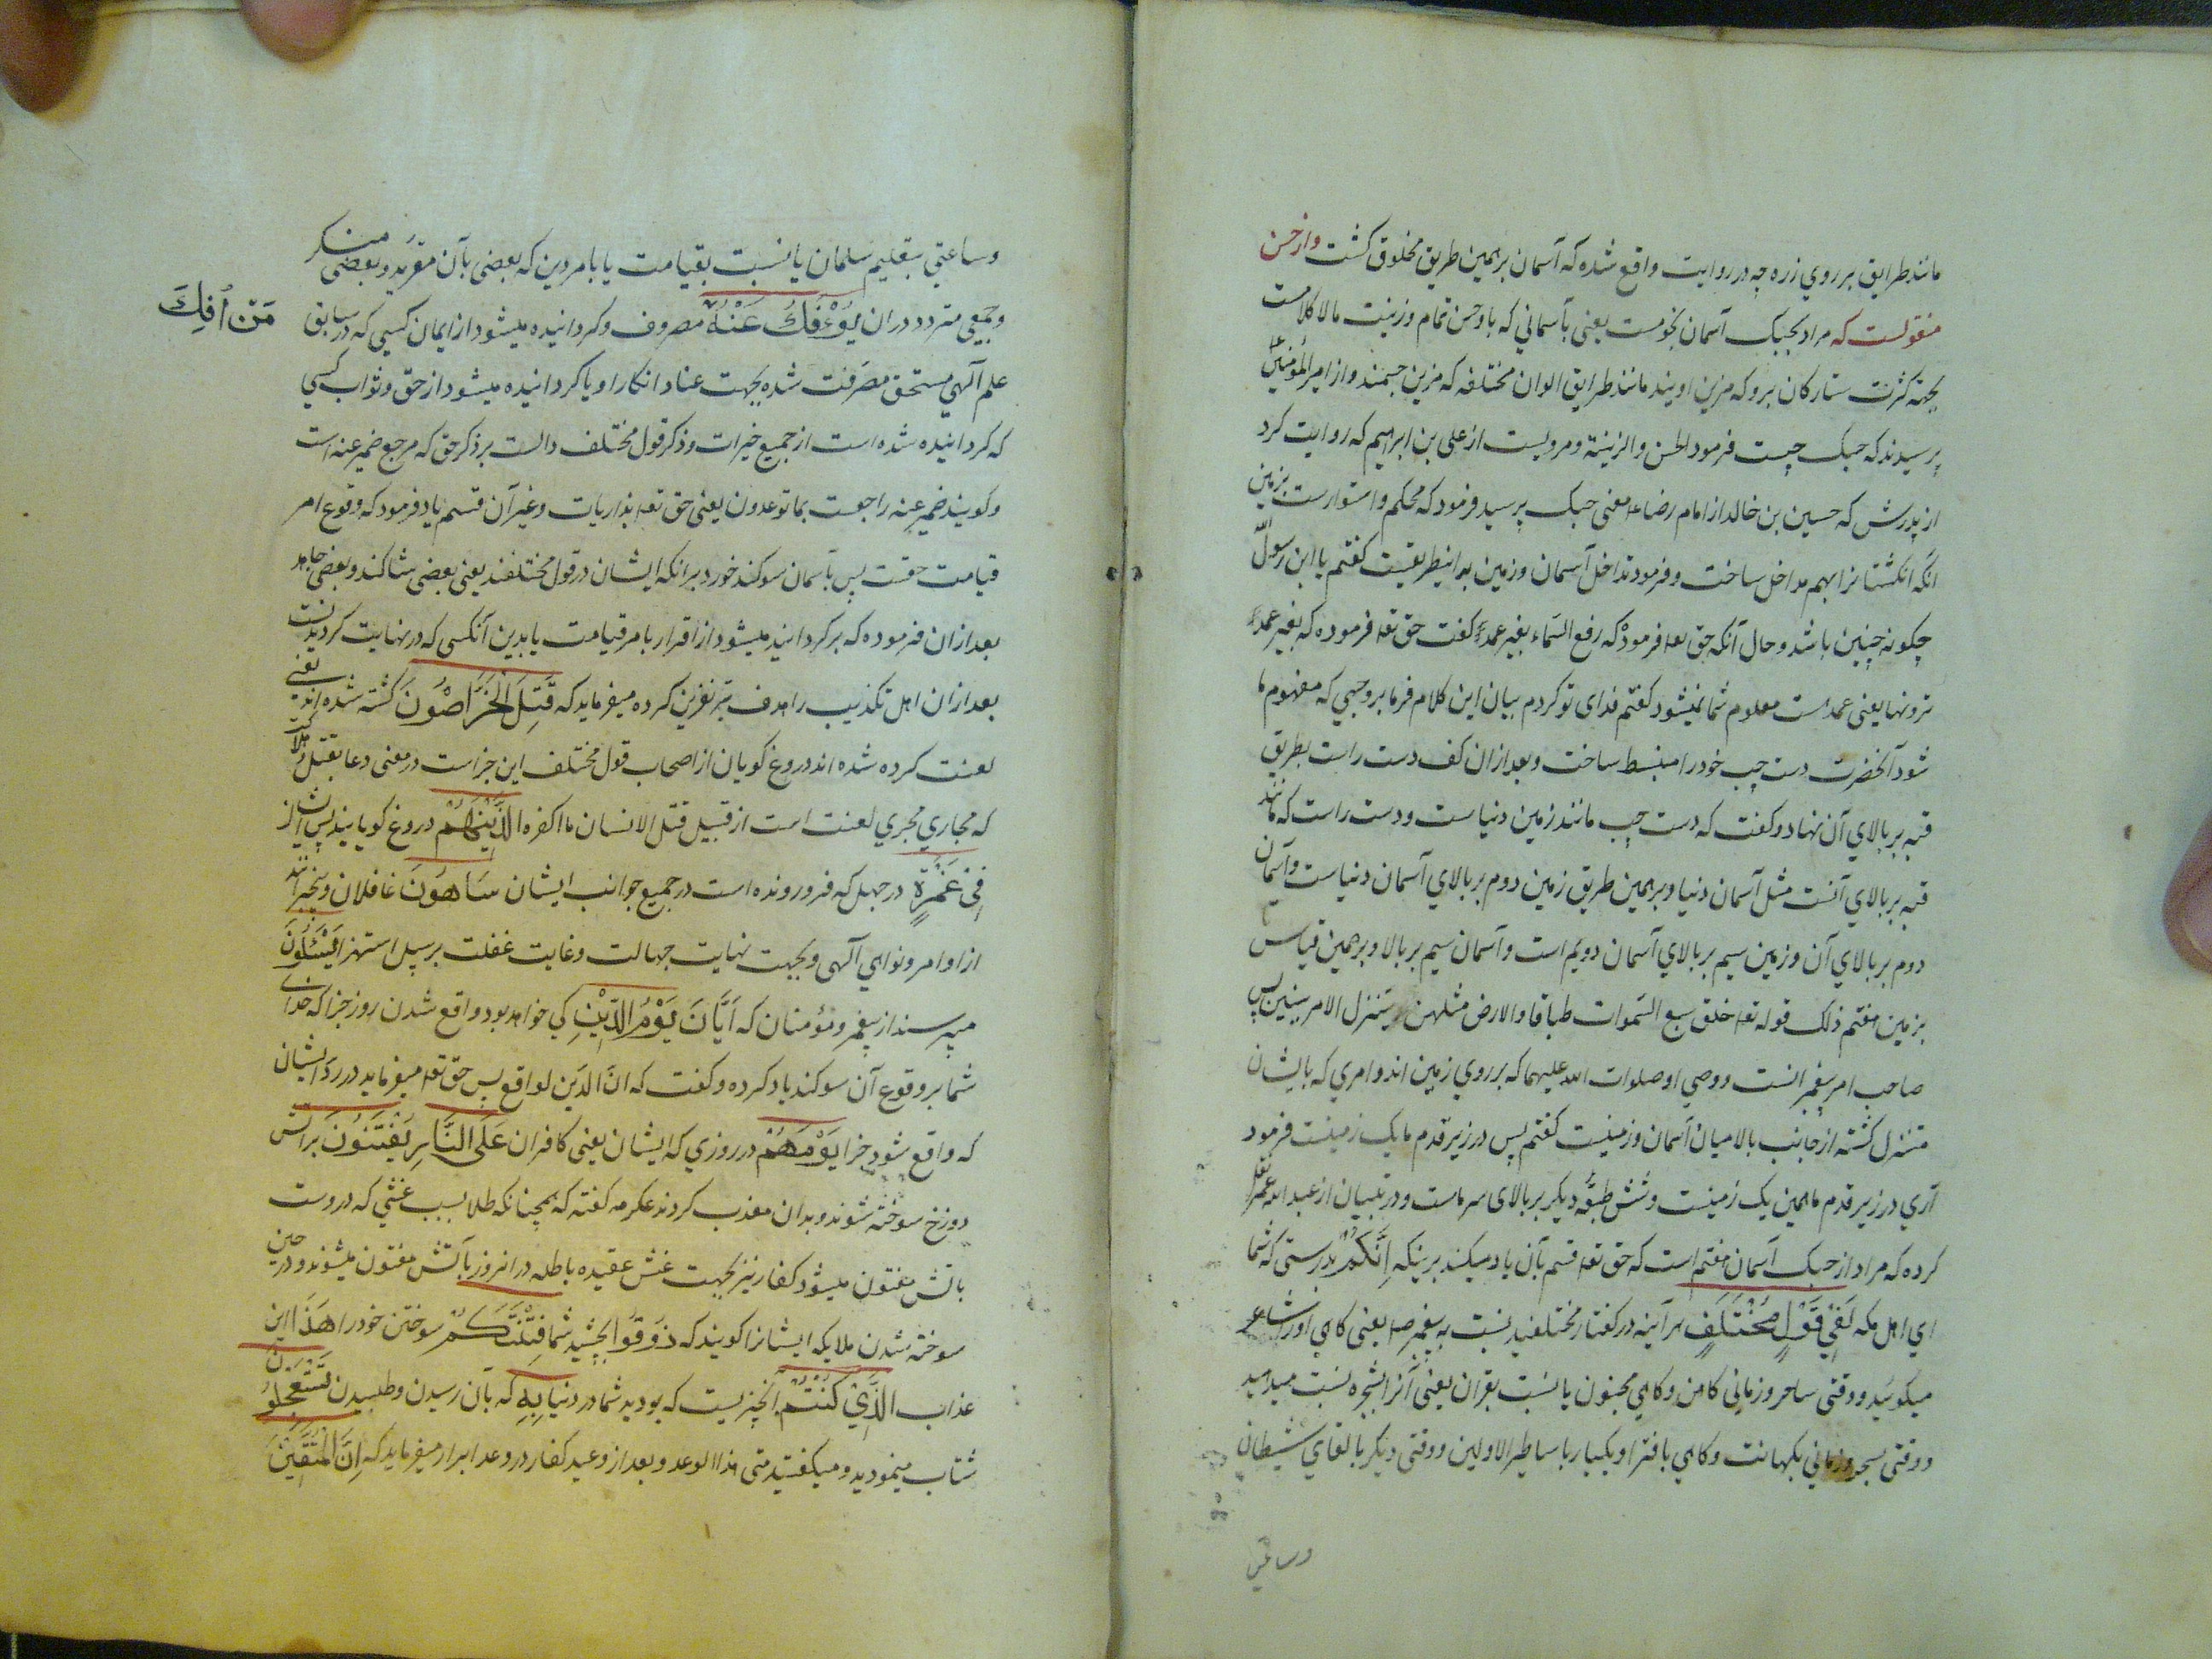 مانند طرایق بر روي زره چه در روایت واقع شده که آسمان برهمین طریق مخلوق کشت وازحسن
منقولست که مراد بحبک آسمان نجومست یعنی بآسماني که با وحسن تمام وزینت مالاکلامست
بجهة کثرت ستارکان برو که مزین اویند مانند طرایق الوان مختلفه که مزین جسمند واز امیر المؤمنین ع
پرسیدند که حبک چیست فرمود الحسن والزینة ومرویست از علی بن ابراهیم که روایت کرد
از پدرش که حسین بن خالد از امام رضا ع معنی حبک پرسید فرمود که محکم واستوارست بزمین
انکه انکشتانرا بهم مداخل ساخت وفرمود تداخل آسمان وزمین بدانیطریقست کفتم یا ابن رسول الله
چکونه چنین باشد وحال آنکه حق تعه فرموده که رفع السماء بغیر عمد کفت حق تعه فرموده که بغیر عمد
ترونها یعنی عمد است معلوم شما نمیشود کفتم فدای تو کردم بیان این کلام فرما بر وجهي که مفهوم ما
شود آنحضرت دست چپ خود را منبسط ساخت وبعد ازان کف دست راست بطریق
قبه بر بالاي آن نهاد وکفت که دست چپ مانند زمین دنیاست ودست راست که مانند
قبه بر بالاي آنست مثل آسمان دنیا وبرهمین طریق زمین دوم بر بالاي آسمان دنیاست وآسمان
دوم بر بالاي آن وزمین سیم بر بالاي آسمان دویم است وآسمان سیم بر بالا وبرهمین قیاس
بزمین هفتم ذلک قوله تعه خلق سبع السموات طباقا والارض مثلهن یتنزل الامر بینهن پس
صاحب امر پیغمبرانست ووصي او صلوات الله علیهما که بر روي زمین اند وامري که بایشان
متنزل کشته از جانب بالا میان آسمان وزمینست کفتم پس در زیر قدم ما یک زمینست فرمود
آري در زیر قدم ما همین یک زمینست وشش طبقه دیکر بر بالای سر ماست ودر تبیان از عبد الله عمر نقل
کرده که مراد از حبک آسمان هفتم است که حق تعه قسم بآن یاد میکند برینکه اِنَّکُمْ بدرستی که شما
اي اهل مکه لَفِي قَوْلٍ مُخْتَلِفٍ هر آینه در کفتار مختلفید نسبت به پیغمبر ص یعنی کاهي اورا شاعر
میکوئید ووقتی ساحر وزمانی کاهن وکاهي مجنون یا نسبت بقران یعنی آنرا بشجره نسبت میدهید
ووقتی بسحر وزماني بکهانت وکاهي بافترا ویکبار باساطیر الاولین ووقتی دیکر بالقاي شیطان
وساعتی
وساعتي بتعلیم سلمان یا نسبت بقیامت یا بامر دین که بعضی بآن مقرند وبعضی منکر
وجمعي متردد دران یُؤْفَكُ عَنْهُ مصروف وکردانیده میشود از ایمان کسي که در سابق مَنْ اُفِكَ
علم آلهي مستحق مصرفت شده بجهت عناد انکار او یا کردانیده میشود از حق وثواب کسي
که کردانیده شده است از جمیع خیرات وذکر قول مختلف دالست بر ذکر حق که مرجع ضمیر عنه است
وکویند ضمیر عنه راجعست بما توعدون یعنی حق تعه بذاریات وغیر آن قسم یاد فرمود که وقوع امر
قیامت حقست پس بآسمان سوکند خورد برانکه ایشان در قول مختلفند یعنی بعضی شاکند وبعضی جاحد
بعد ازان فرموده که بر کردانید میشود از اقرار بامر قیامت یا بدین آنکسی که در نهایت کردیدنست
بعد ازان اهل تکذیب را هدف تیر نفرین کرده میفرماید که قُتِلَ الْخَرَّاصُونَ کشته شده اند یعنی
لعنت کرده شده اند دروغ کویان از اصحاب قول مختلف این خبر است در معنی دعا بقتل
که مجاري مجري لعنت است از قبیل قتل الانسان ما اکفره اَلَّذِینَ هُمْ دروغ کویانید پس ایشان
فِي غَمْرَةٍ در جهل که فرو رونده است در جمیع جوانب ایشان سَاهُونَ غافلان وبیخبرانند
از اوامر ونواهي آلهی وبجهت نهایت جهالت وغایت غفلت بر سبیل استهزا یَسْئَلُونَ
میپرسند از پیغمبر ومؤمنان که اَیَّانَ یَوْمُ الدِّینِ کي خواهد بود واقع شدن روز جزا که خداي
شما بر وقوع آن سوکند یاد کرده وکفت که انّ الدین لواقع پس حق تعه میفرماید در رد ایشان
که واقع شود جزا یَوْمَ هُمْ در روزي که ایشان یعنی کافران عَلَى النَّارِ یُفْتَنُونَ بر اتش
دوزخ سوخته شوند وبدان معذب کردند عکرمه کفته که همچنانکه طلا بسبب غشی که دروست
باتش مفتون میشود کفار نیز بجهت غش عقیده باطله در انروز بآتش مفتون میشوند ودر حین
سوخته شدن ملایکه ایشانرا کویند که ذُوقُوا بچشید شما فِتْنَتَکُمْ سوختن خود را هَذَا این
عذاب اَلَّذِي کُنْتُمْ آنچیزیست که بودید شما در دنیا بِهِ که بآن رسیدن وطلبیدن تَسْتَعْجِلُونَ
شتاب مینمودید ومیکفتید متی هذا الوعد وبعد از وعید کفار در وعد ابرار میفرماید که اِنَّ الْمُتَّقِینَ